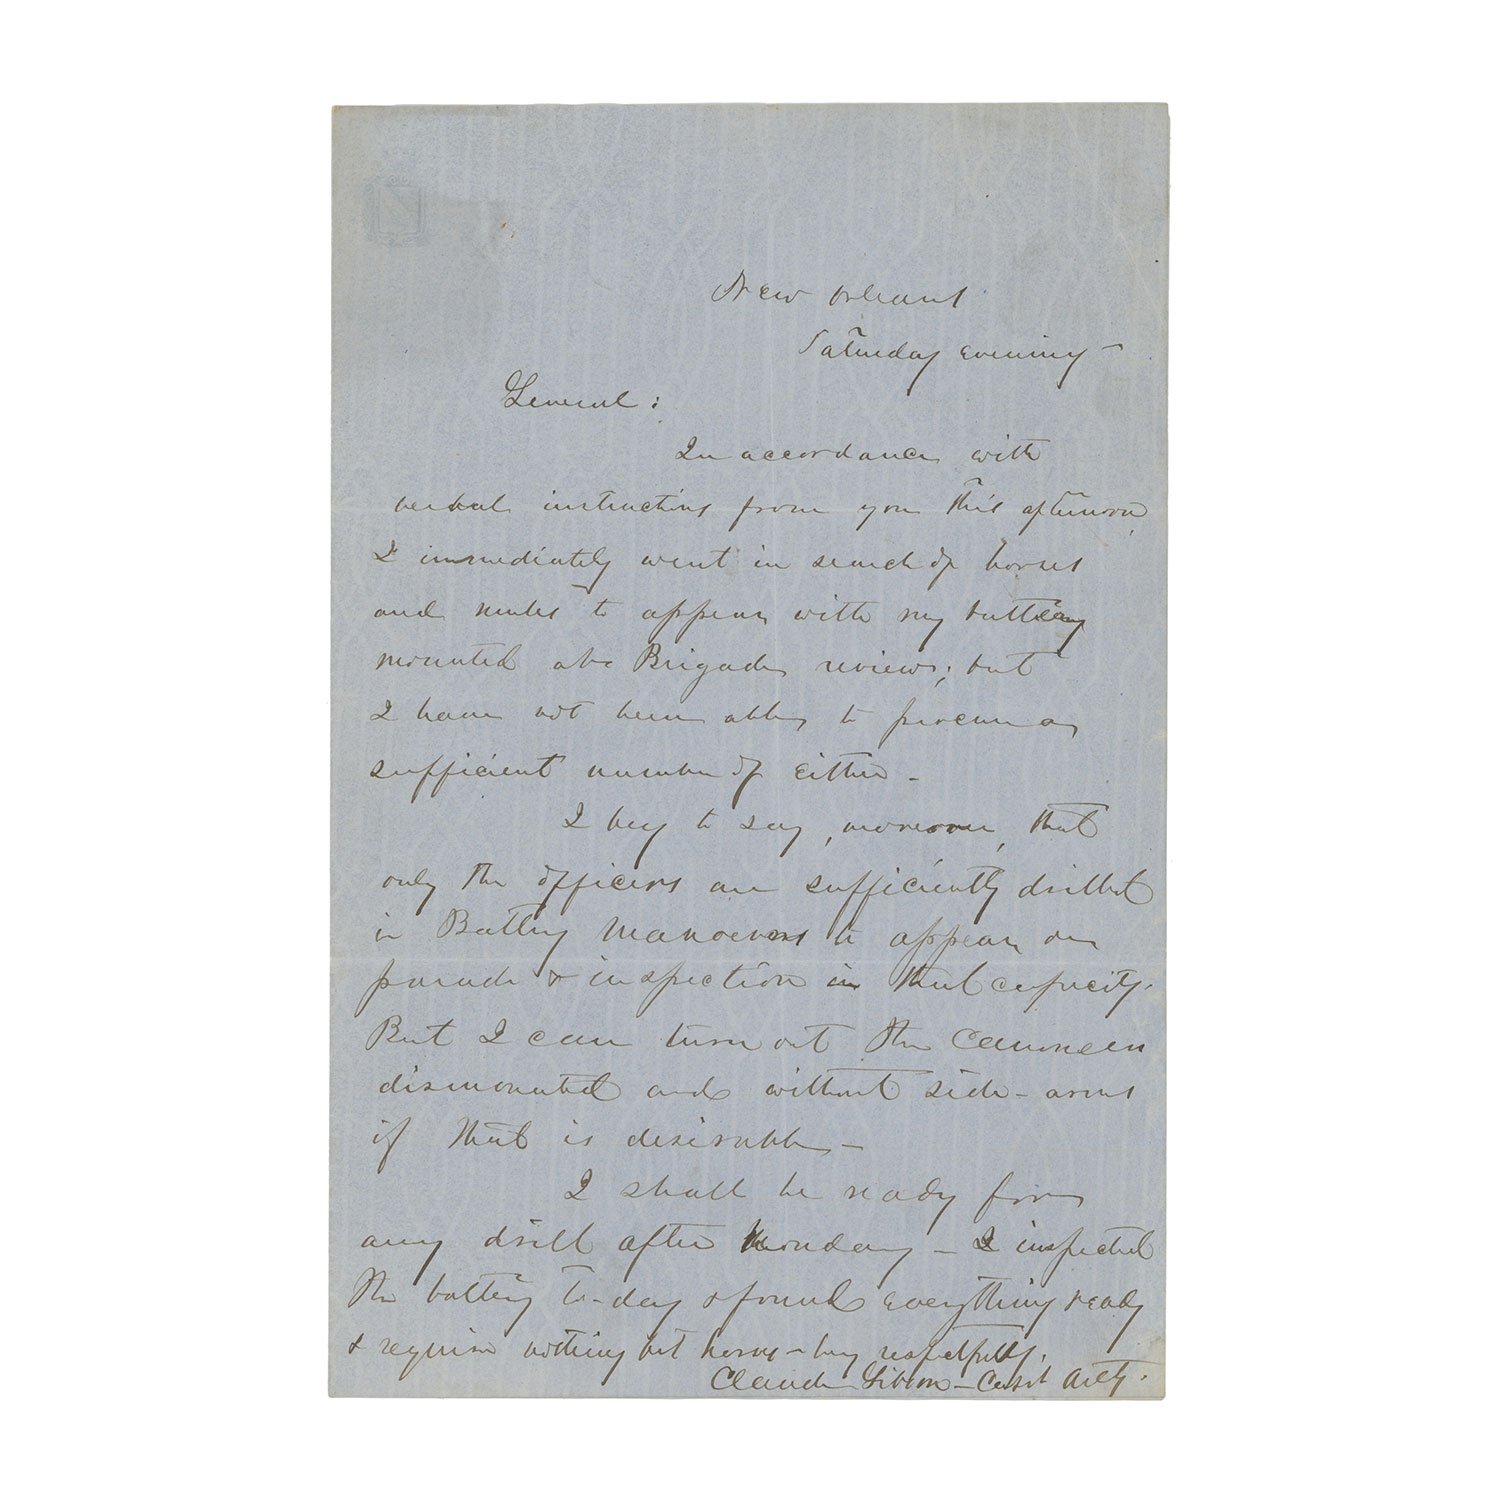 New Orleans
Saturday evening –
General :
In accordance with
verbal instructions from you this afternoon,
I immediately went in search of horses
and mules to appear with my battery
mounted at Brigade review; but
I have not been able to procure a
sufficient number of either –
I beg to say, moreover, that
only the officers are sufficiently drilled
in Battery manoeuvres to appear on
parade & inspection in that capacity.
But I can turn out the Canoneers
dismounted and without side-arms
if that is desirable –
I shall be ready for
any drill after Monday – I inspected
the battery to-day & found everything ready
& require nothing but horses – very respectfully,
Claude Gibson – Capt Arty.